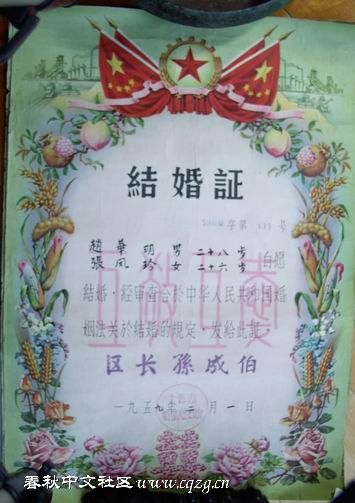 結婚証
字第 号
趙華明 男 二十八岁
張凤玲 女 二十六岁 自愿
結婚，经審查合於中华人民共和国婚
姻法关於結婚的規定，发給此証
区长孫成伯
一九五九年二月一日
春秋中文社区www.cqzg.cn